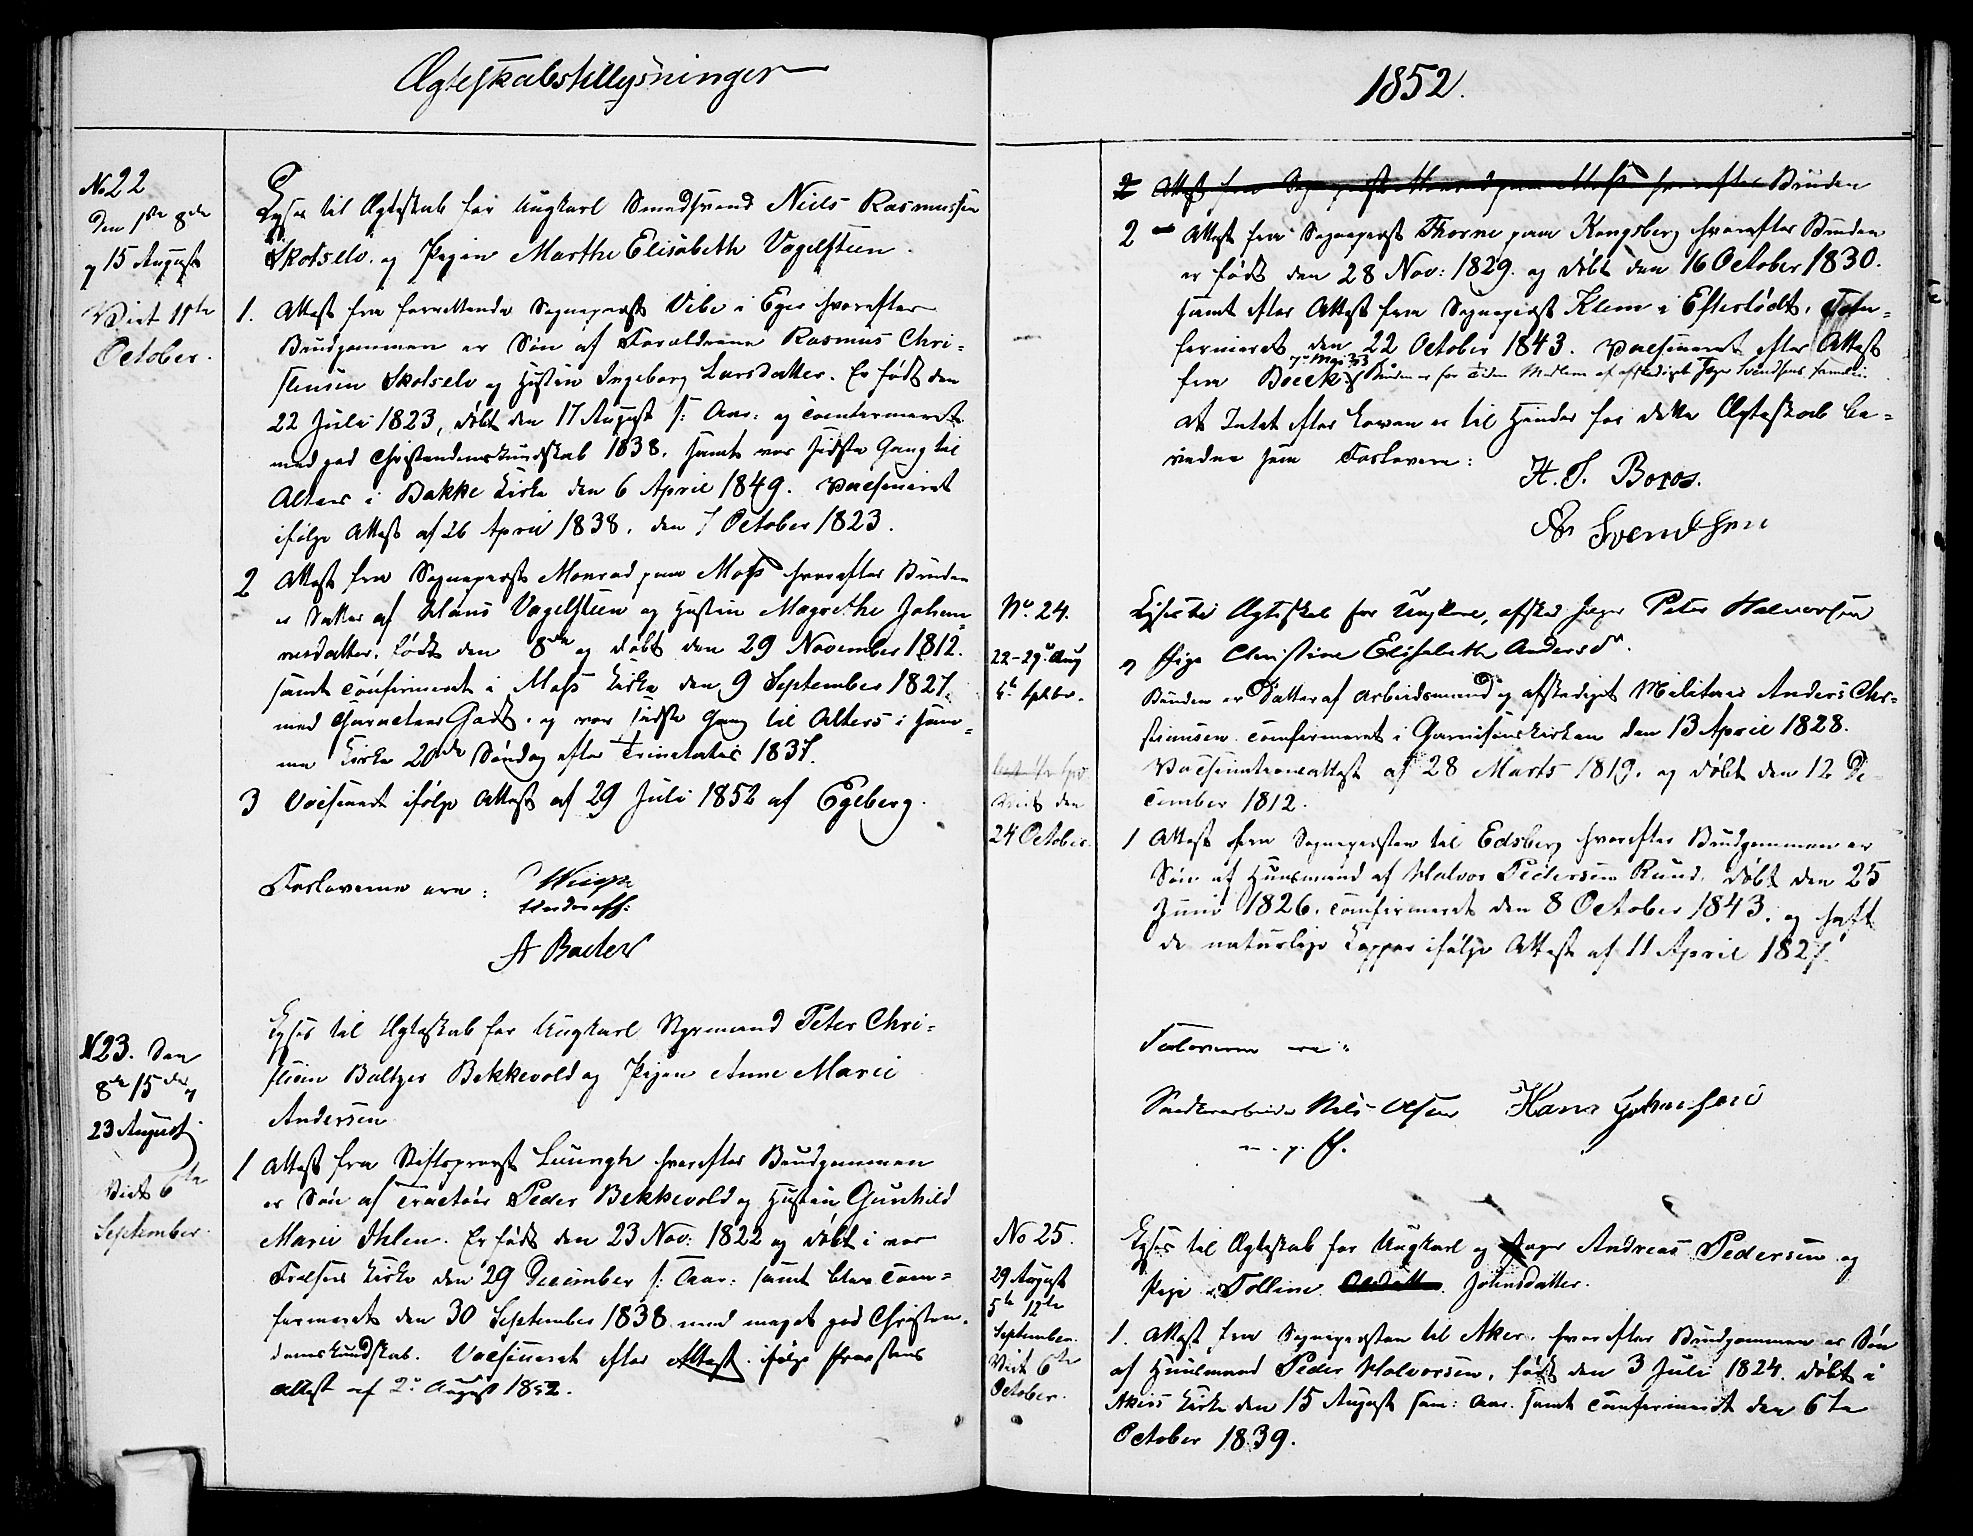 Ægteskabstillysninger
No 22
Den 1ste 8de
og 15 August
Viet 11te
October.
Lyses til Ægteskab for Ungkarl Smedsvend Niels Rasmussen
Skotselv. og Pigen Marthe Elisabeth Vogelsteen.
1. Attest fra forrettende Sognepræst Vibe i Eger hvorefter
Brudgommen er Søn af Forældrene Rasmus Chri-
stensen Skotselv og Hustru Ingeborg Larsdatter. Er født den
22 Juli 1823, døbt den 17 August s: Aar: og confirmeret
med god Christendomskundskab 1838. samt var sidste Gang til
Alters i Bakke Kirke den 6 April 1849. Vacsineret
ifølge Attest af 26 April 1838. den 7 October 1823.
2 Attest fra Sognepræst Monrad paa Moss hvorefter Bruden
er Datter af Hans Vogelsteen og Hustru Magrethe Johan-
nesdatter. født den 8de og døbt den 29 November 1812.
samt confirmeret i Moss Kirke den 9 September 1827.
med Caracteer Godt. og var sidste Gang til Alters i sam-
me Kirke 20de Søndag efter Trinitatis 1837.
3 Vacsineret ifølge Attest af 29 Juli 1852 af Egeberg.
Forloverne ere:
A Bader
N 23. Den
8de 15de og
23 August
Viet 6te
September.
Lyses til Ægteskab for Ungkarl Styrmand Peter Chri-
stian Baltzer Bekkevold og Pigen Anne Marie
Andersen
1 Attest fra Stiftsprovst Luungh hvorefter Brudgommen
er Søn af Tracteur Peder Bekkevold og Hustru Gunhild
Marie Ihlen. Er født den 23 Nov: 1822 og døbt i vor
Frelsers Kirke den 29 December s: Aar: samt blev con-
firmeret den 30 September 1838 med meget god Christen-
domskundskab. Vacsineret efter Attest. ifølge Provstens
Attest af 2' August 1852.
1852.
2 Attest fra Sognepræst Monrad paa Moss hvorefter Bruden
2 Attest fra Sognepræst Thorne paa Kongsberg hvorefter Bruden
er født den 28 Nov: 1829. og døbt den 16 October 1830.
samt efter Attest fra Sognepræst Klem i Efterlødt. Con-
firmeret den 22 October 1843. Vacsineret efter Attest
fra Boeck 7 Mai 33 Bruden er for Tiden Medlem af afskediget Jæger Svendsens Familie
At Intet efter Loven er til Hinder for dette Ægteskab be-
vidne som Forlovere:
H. T. Boros.
Svendsen
No. 24.
22-29' Aug
5t Sptbr.
Viet den
24 October.
Lyses til Ægteskab for Ungkarl, afsked Jæger Peter Halvorsen
og Pige Christine Elisabeth Andersdr.
Bruden er Datter af Arbeidsmand og afskediget Militair Anders Chr-
stiansen confirmeret i Garnisonskirken den 13 April 1828.
Vacsinationsattest af 28 Marts 1819. og døbt den 12 De-
cember 1812.
1 Attest fra Sognepræsten til Edsberg hvorefter Brudgommen er
Søn af Huusmand af Halvor Pedersen Ruud. døbt den 25
Juni 1826. confirmeret den 8 October 1843. og havt
de naturlige Kopper ifølge Attest af 11 April 1827.
Forloverne ere:
Niels Olsen Hans Johnsen
m. p. P.
No 25.
29 August
5te 12te
September.
Viet 6te
October.
Lyses til Ægteskab for Ungkarl og Jæger Andreas Pedersen og
Pige Olline Johnsdatter.
1. Attest fra Sognepræsten til Aker. hvorefter Brudgommen er Søn
af Huusmand Peder Halvorsen, født den 3 Juli 1824. døbt i
Akers Kirke den 15 August sam: Aar. samt confirmeret den 6te
October 1839.